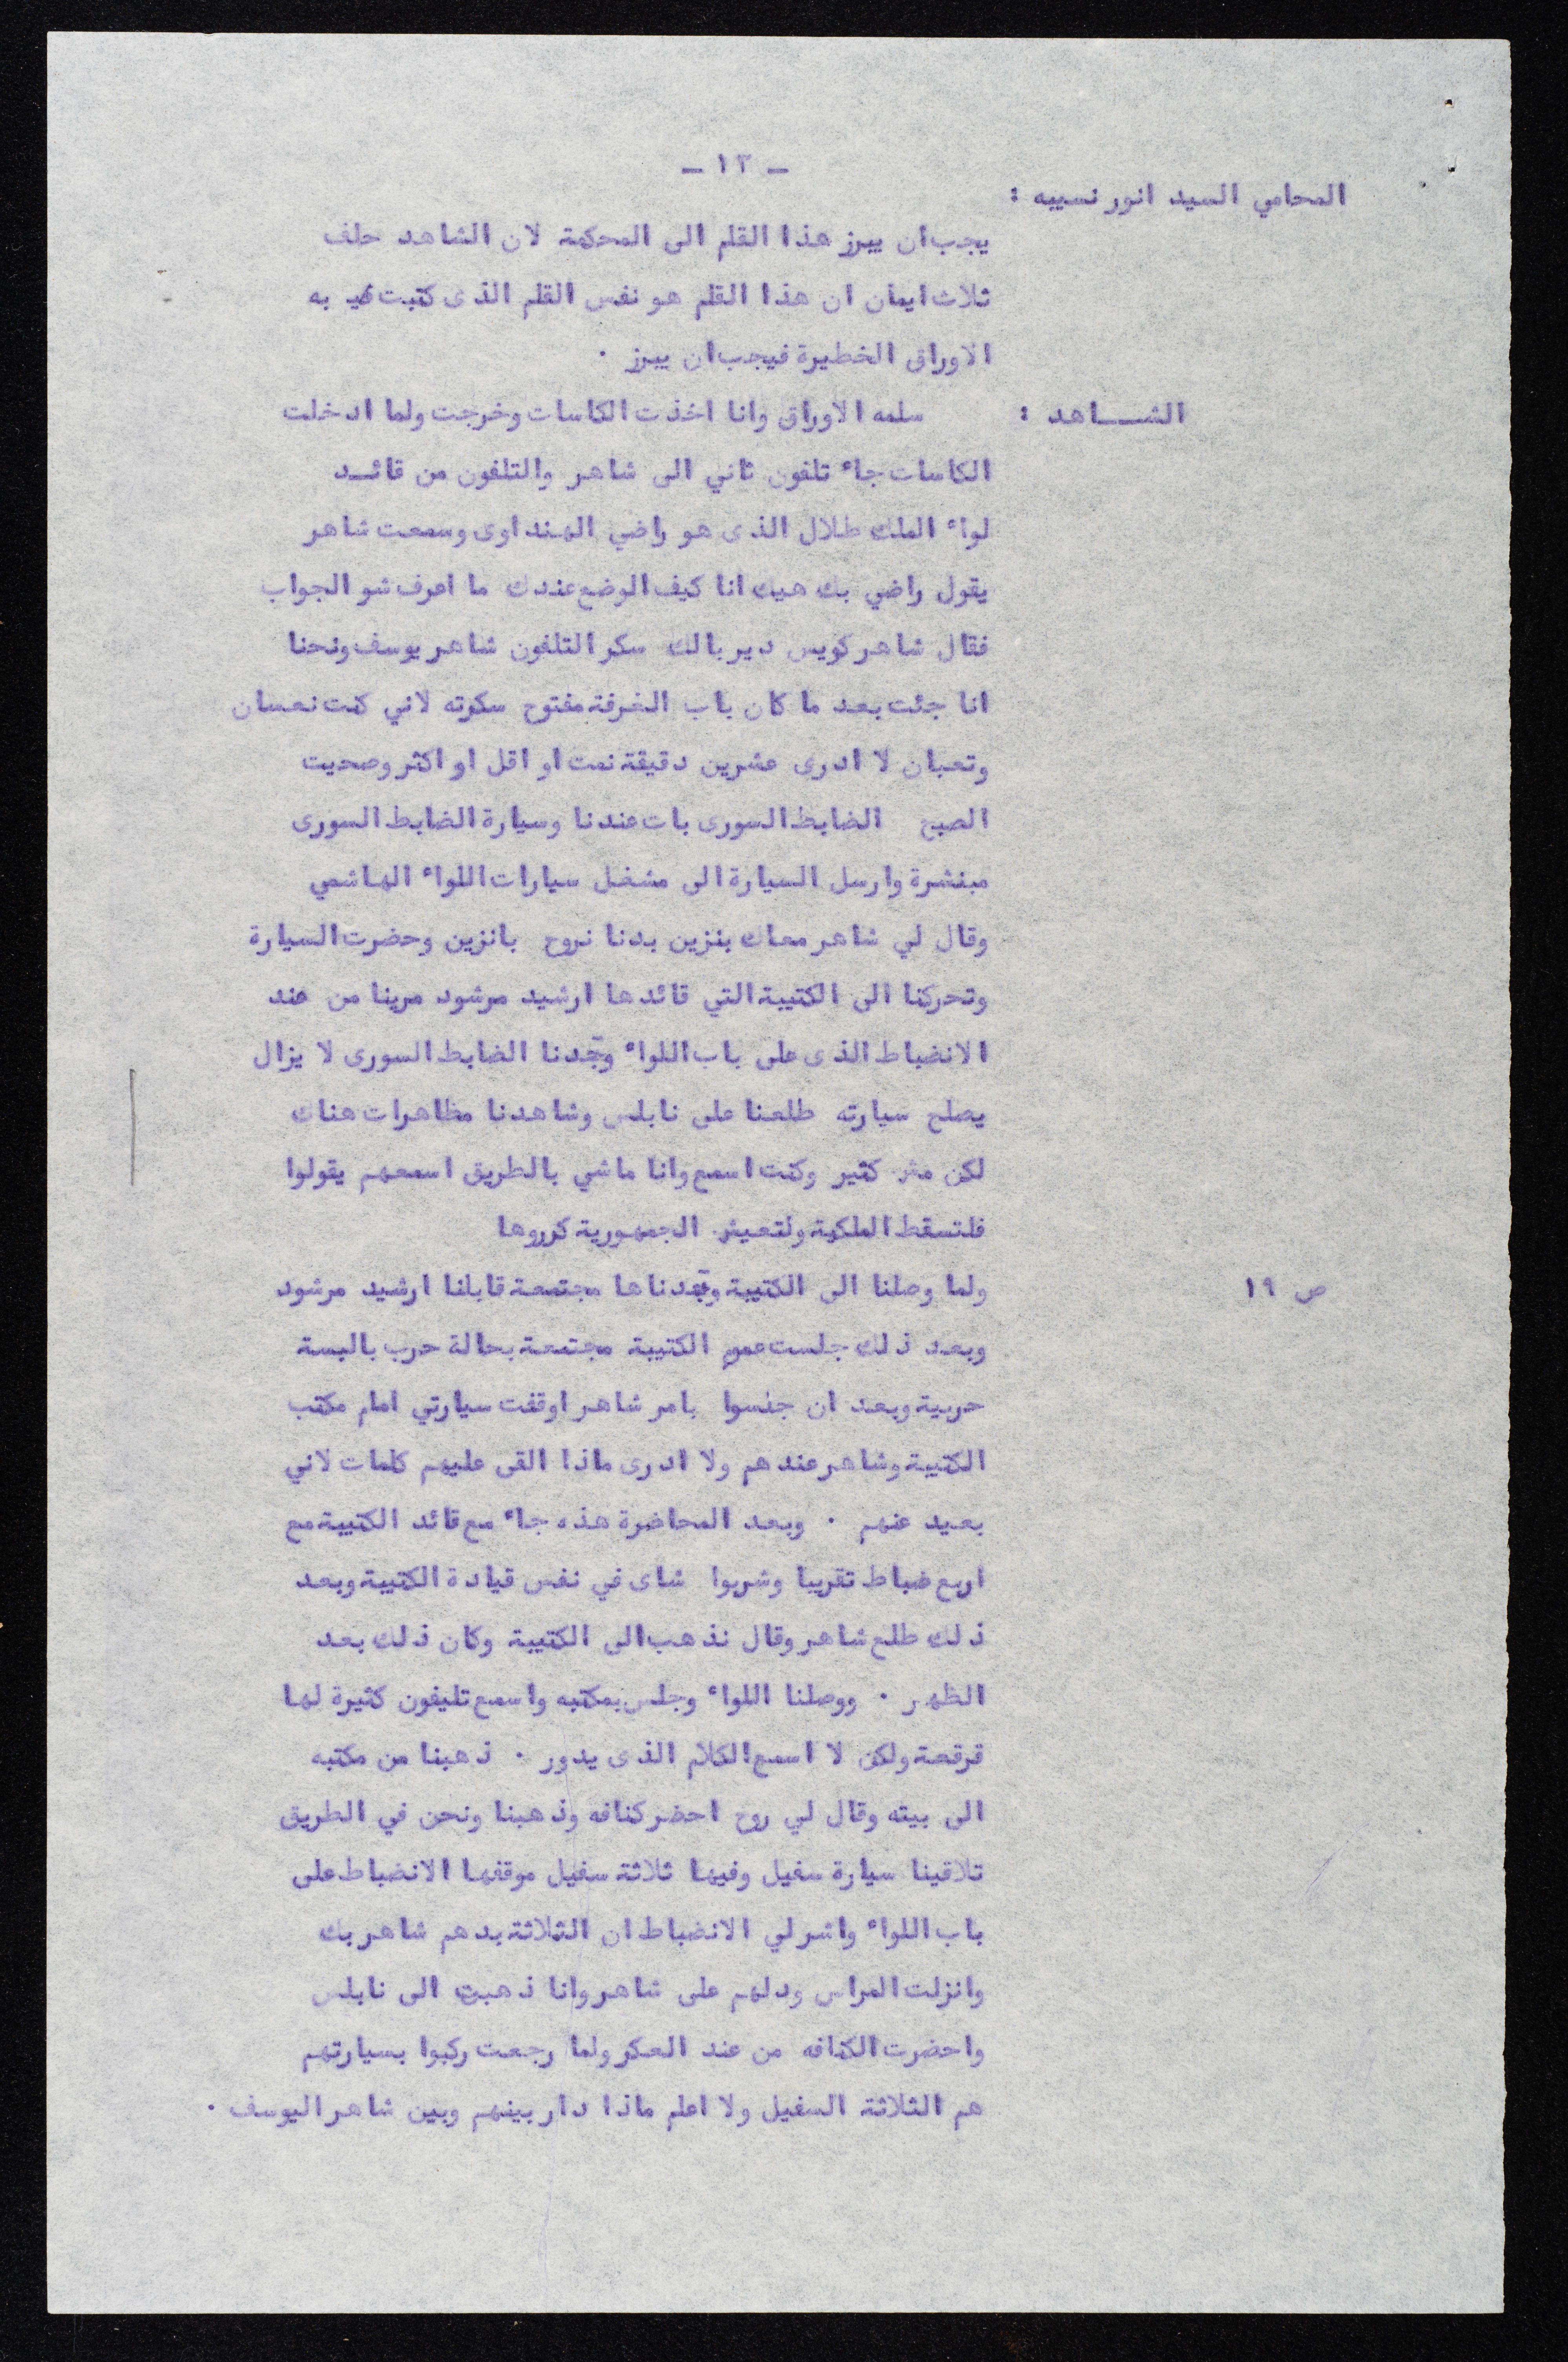 - ١٣ -
المحامي السيد انور نسيبه :
يجب ان يبرز هذا القلم الى المحكمة لان الشاهد حلف
ثلاث ايمان ان هذا القلم هو نفس القلم الذى كتبت به
الاوراق الخطيرة فيجب ان يبرز .
الشـــاهد : سلمه الاوراق وانا اخذت الكاسات وخرجت ولما ادخلت
الكاسات جاء تلفون ثاني الى شاهر والتلفون من قائـد
لواء الملك طلال الذى هو راضي الهنداوى وسمعت شاهر
يقول راضي بك هيك انا كيف الوضع عندك ما اعرف شو الجواب
فقال شاهر كويس دير بالك سكر التلفون شاهر يوسف ونحنا
انا جئت بعد ما كان باب الغرفة مفتوح سكرته لاني كنت نعسان
وتعبان لا ادرى عشرين دقيقة نمت او اقل او اكثر وصحيت
الصبح الضابط السورى بات عندنا وسيارة الضابط السورى
مبنشرة وارسل السيارة الى مشغل سيارات اللواء الهاشمي
وقال لي شاهر معاك بنزين بدنا نروح بانزين وحضرت السيارة
وتحركنا الى الكتيبة التي قائدها ارشيد مرشود مرينا من عند
الانضباط الذى على باب اللواء وجدنا الضابط السورى لا يزال
يصلح سيارته طلعنا على نابلس وشاهدنا مظاهرات هناك
لكن مش كثير وكنت اسمع وانا ماشي بالطريق اسمعهم يقولوا
فلتسقط الملكية ولتعيش الجمهورية كرروها
ص ١٩ ولما وصلنا الى الكتيبة وجدناها مجتمعة قابلنا ارشيد مرشود
وبعد ذلك جلست الكتيبة مجتمعة بحالة حرب بالبسة
حربية وبعد ان جلسوا بامر شاهر اوقفت سيارتي امام مكتب
الكتيبة وشاهر عندهم ولا ادرى ماذا القى عليهم كلمات لاني
بعيد عنهم . وبعد المحاضرة هذه جاء مع قائد الكتيبة مع
اربع ضباط تقريبا وشربوا شاى في نفس قيادة الكتيبة وبعد
ذلك طلع شاهر وقال نذهب الى الكتيبة وكان ذلك بعد
الظهر . ووصلنا اللواء وجلس بمكتبه واسمع تليفون كثيرة لها
قرقعة ولكن لا اسمع الكلام الذى يدور . ذهبنا من مكتبه
الى بيته وقال لي روح احضر كنافه وذهبنا ونحن في الطريق
تلاقينا سيارة سفيل وفيها ثلاثة سفيل موقفها الانضباط على
باب اللواء واشر لي الانضباط ان الثلاثة بدهم شاهر بك
وانزلت المراس ودلهم على شاهر وانا ذهبت الى نابلس
واحضرت الكنافه من عند العكر ولما رجعت ركبوا بسيارتهم
هم الثلاثة السفيل ولا اعلم ماذا دار بينهم وبين شاهر اليوسف .